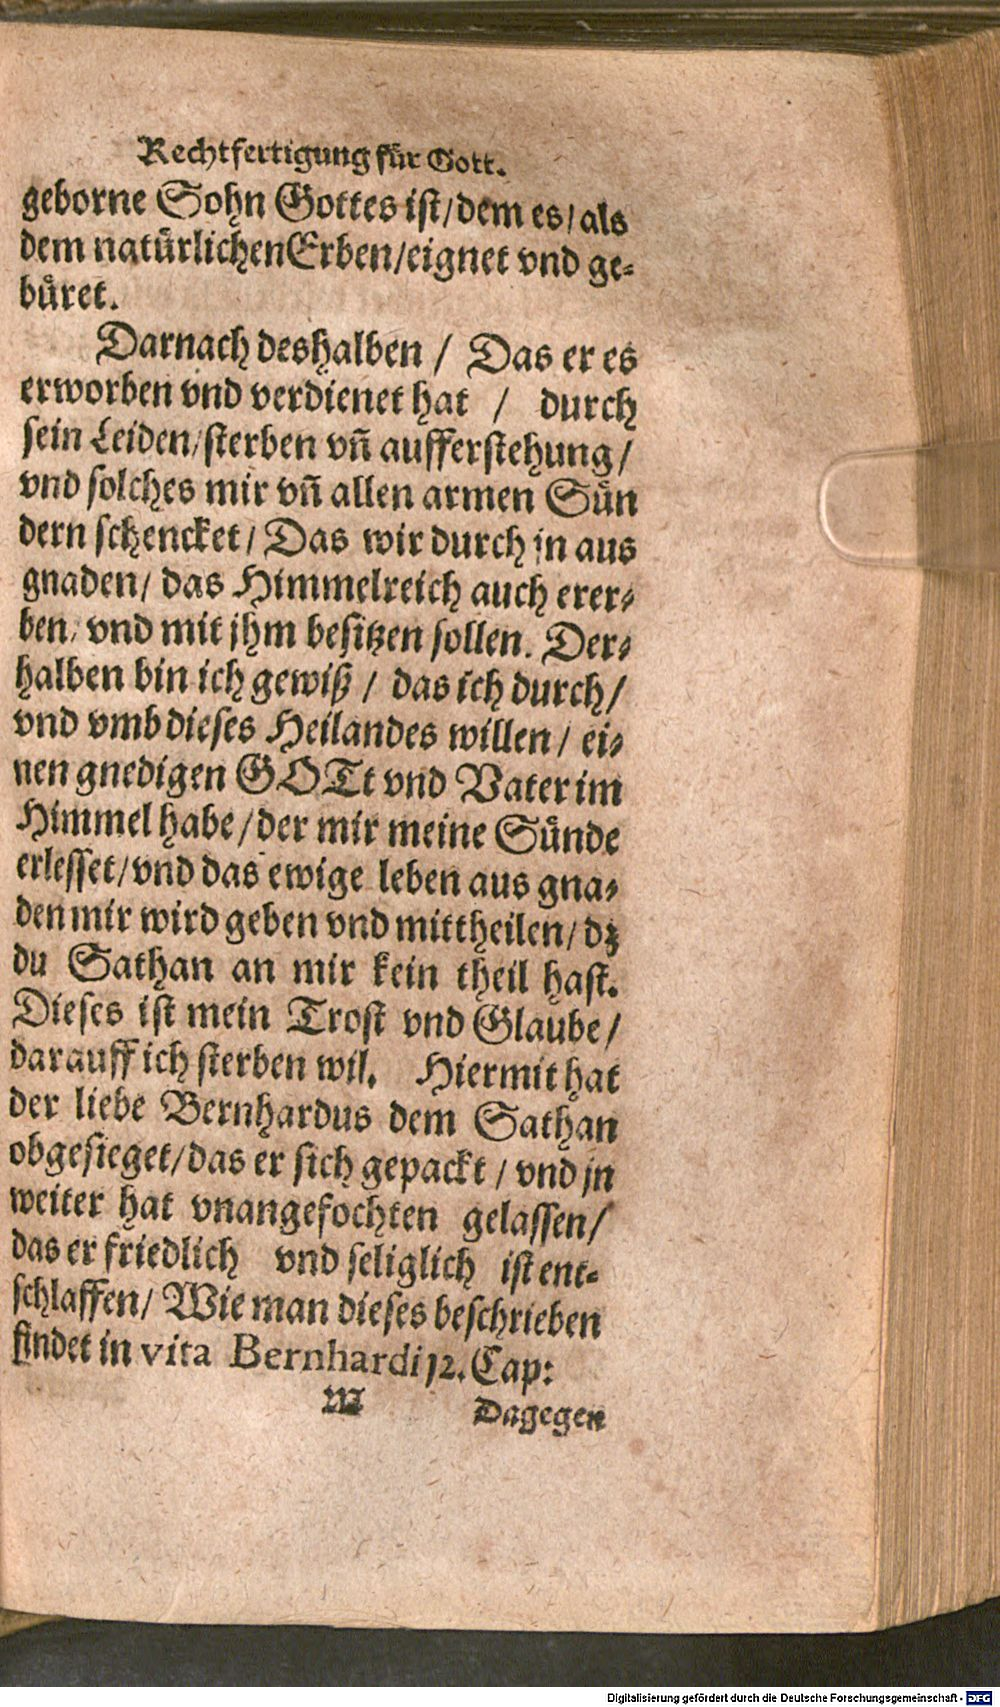 Rechtfertigung für Gott.
geborne Sohn Gottes ist/dem es/als
dem natürlichenErben/eignet vnd ge-
büret.
Darnach deshalben / Das er es
erworben vnd verdienet hat / durch
sein Leiden/sterben vn̄ aufferstehung/
vnd solches mir vn̄ allen armen Sün
dern schencket/ Das wir durch jn aus
gnaden/ das Himmelreich auch erer-
ben/ vnd mit jhm besitzen sollen. Der-
halben bin ich gewiß / das ich durch/
vnd vmb dieses Heilandes willen/ ei-
nen gnedigen GOTt vnd Vater im
Himmel habe/der mir meine Sünde
erlesset/vnd das ewige leben aus gna-
den mir wird geben vnd mittheilen/dz
du Sathan an mir kein theil hast.
Dieses ist mein Trost vnd Glaube/
darauff ich sterben wil. Hiermit hat
der liebe Bernhardus dem Sathan
obgesieget/das er sich gepackt / vnd jn
weiter hat vnangefochten gelassen/
das er friedlich vnd seliglich ist ent-
schlaffen/ Wie man dieses beschrieben
findet in vita Bernhardi 12. Cap:
M Dagegen
Digitalisierung gefördert durch die Deutsche Forschungsgemeinschaft - DFG